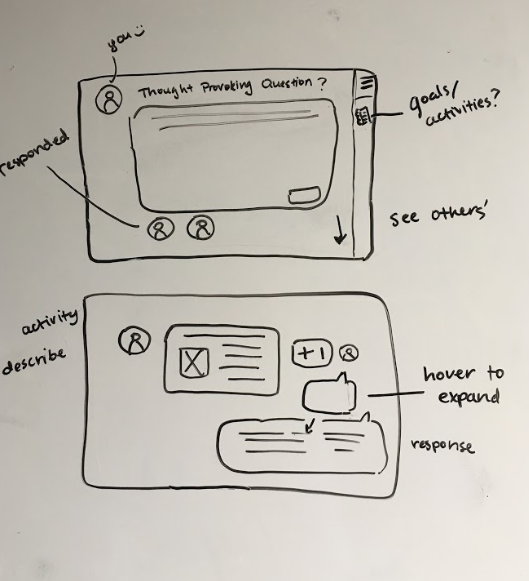 you :)
Thought Provoking Question?
goals/
activities?
responded
see others'
activity
describe
+1
hover to
expand
response